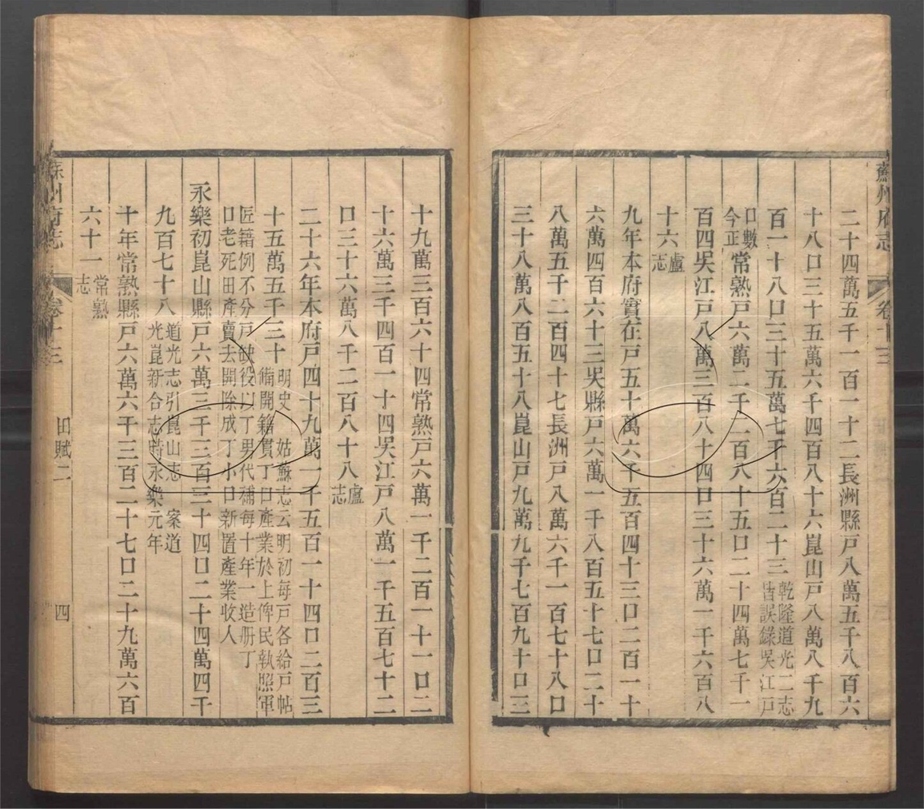 蘇州府志
卷十三
二十四萬五千一百一十二長洲縣戸八萬五千八百六
十八口三十五萬六千四百八十六崑山戸八萬八千九
百一十八口三十五萬七千六百二十三乾隆道光二志
皆誤錄吳江戸
口數
今正常熟戸六萬二千二百八十五口二十四萬七千一
百四吳江戸八萬三百八十四口三十六萬一千六百八
十六盧
志
九年本府實在戸五十萬六千五百四十三口二百一十
六萬四百六十三吳縣戸六萬一千八百五十七口二十
八萬五千二百四十七長洲戸八萬六千一百七十八口
三十八萬八百五十八崑山戸九萬九千七百九十口三
十九萬三百六十四常熟戸六萬一千二百一十一口二
十六萬三千四百一十四吳江戸八萬一千五百七十二
口三十六萬八千二百八十八盧
志
二十六年本府戸四十九萬一千五百一十四口二百三
十五萬五千三十明史 姑蘇志云明初每戸各給戸帖
備開籍貫丁口產業於上俾民執照軍
匠籍例不分戸缺役以丁男代補每十年一造册丁
口老死田產賣去開除成丁小口新置產業收入
永樂初崑山縣戸六萬三千三百三十四口二十四萬四千
九百七十八道光志引崑山志 案道
光崑新合志時永樂元年
十年常熟縣戸六萬六千三百二十七口二十九萬六百
六十一常熟
志
蘇州府志
卷十三
田賦二
四